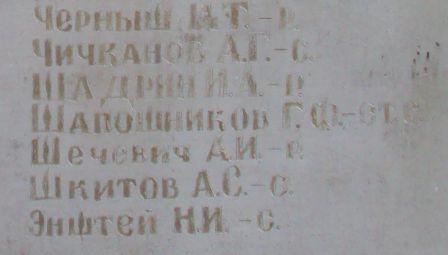 Черныш И.Т.-р.
Чичканов А.Г.-с.
Шадрин И.А.-р.
Шапошников Г.Ф.-ст.с.
Шечевич А.И.-р.
Шкитов А.С.-с.
Энштей Н.И.-с.